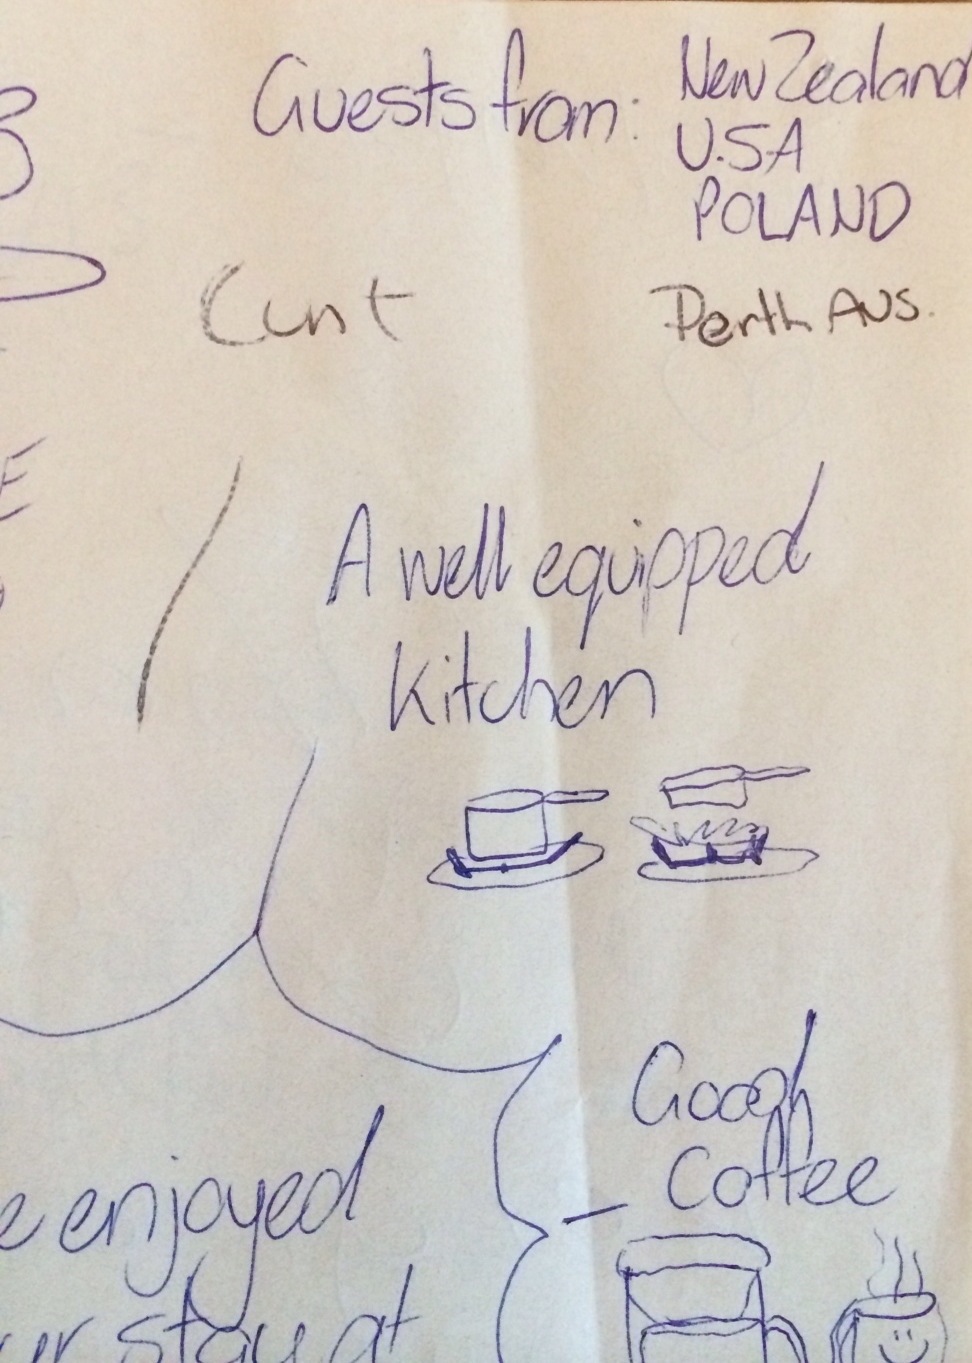 Guests from: New Zealand
U.S.A
POLAND
Cunt
Perth AUS.
A well equipped
Kitchen
Good
Coffee
enjoyed
stay at